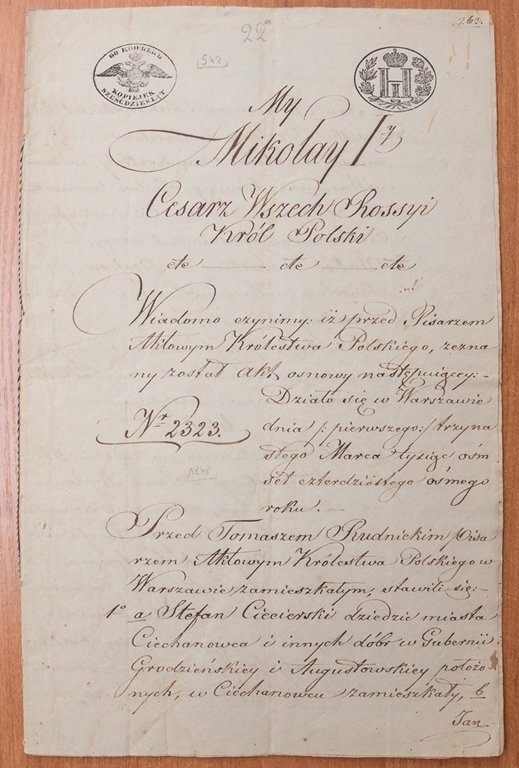 22a
542
262.
60 КОПѢЕКЪ
KOPIEJEK SZEŚĆDZIESIĄT
My
Mikołay Iy
Cesarz Wszech Rossyi
Król Polski
etc ——— etc ——— etc
Wiadomo czynimy: iż przed Pisarzem
Aktowym Królestwa Polskiego, zezna
ny został Akt osnowy następuiącey:-
Działo się w Warszawie
Nr 2323.
dnia /:pierwszego:/ trzyna
stego Marca tysiąc ośm
1848
set czterdziestego ósmego
roku. —
Przed Tomaszem Rudnickim, Pisa
rzem Aktowym Królestwa Polskiego w
Warszawie zamieszkałym, stawili się:-
1o a Stefan Ciecierski dziedzic miasta
Ciechanowca i innych dóbr w Gubernii
Grodzieńskiey i Augustowskiey położo
nych, w Ciechanowcu zamieszkały, b
Jan